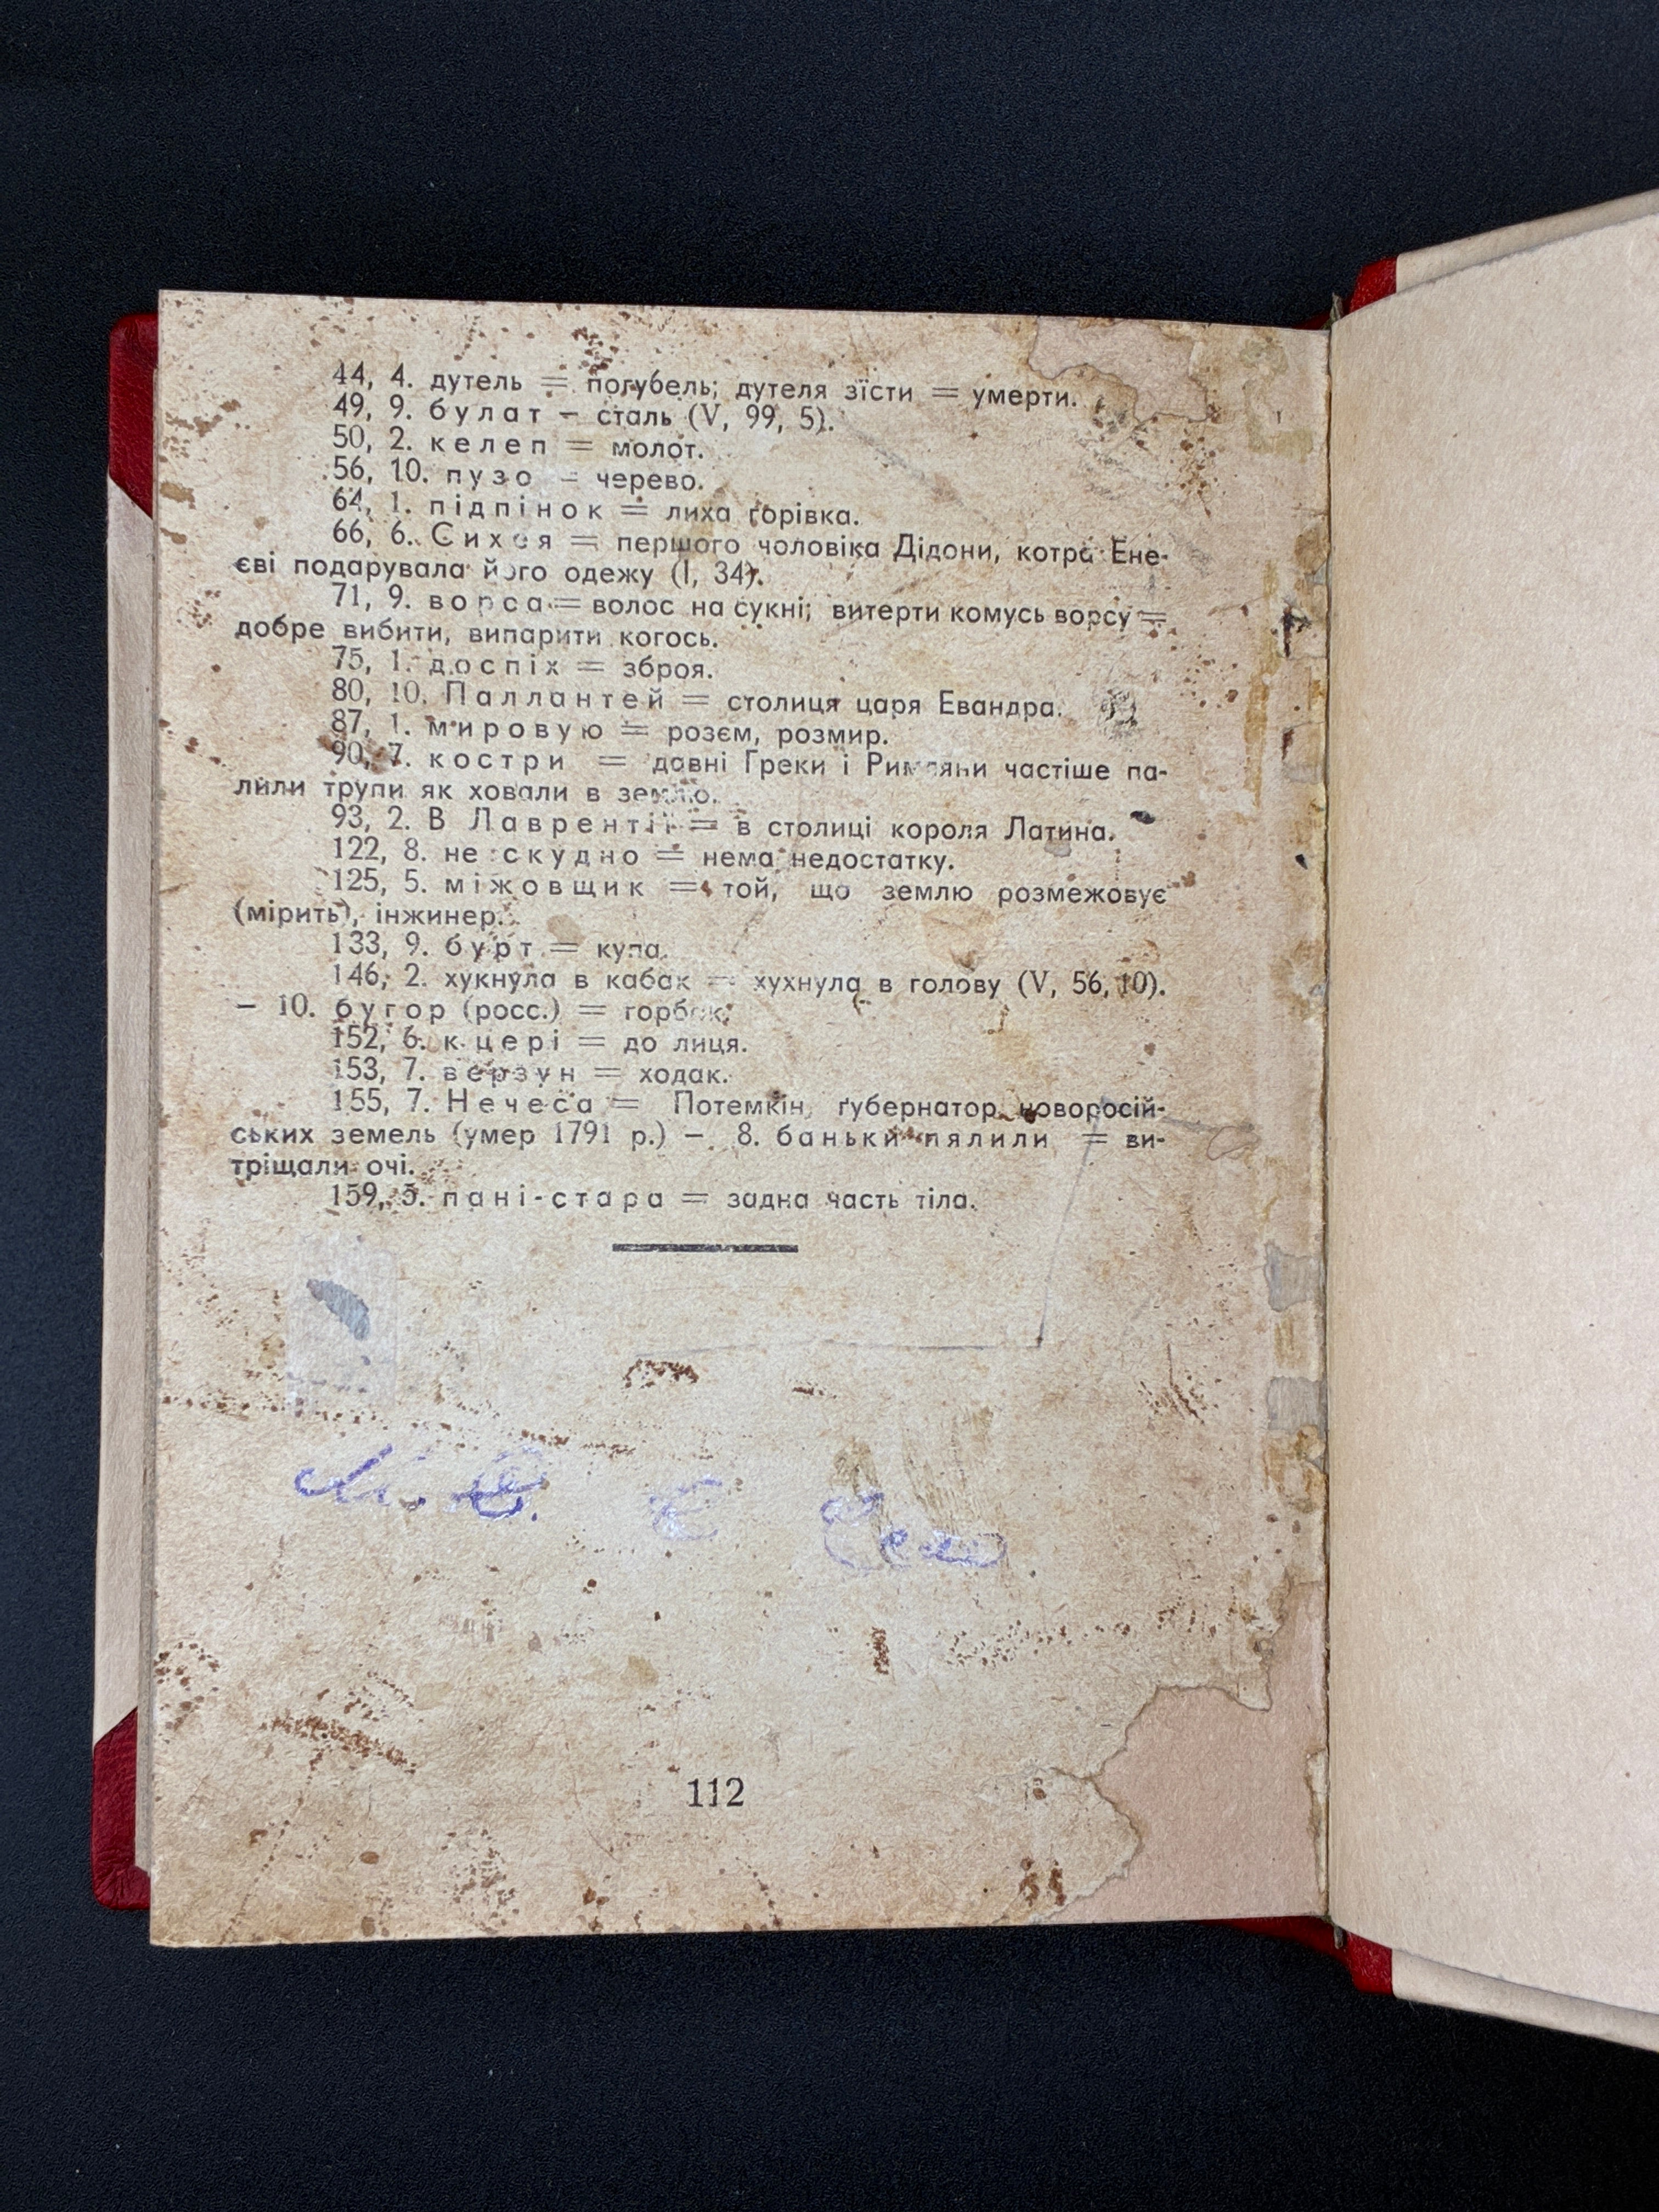 44, 4. дутель = погубель; дутеля зїсти = умерти.
49, 9. булат – сталь (V, 99, 5).
50, 2. келеп = молот.
56, 10. пузо = черево.
64, 1. підпінок = лиха горівка.
66, 6. Сихея = першого чоловіка Дідони, котра Ене-
єві подарувала його одежу (I, 34).
71, 9. ворса = волос на сукні; витерти комусь ворсу =
добре вибити, випарити когось.
75, 1. доспіх = зброя.
80, 10. Паллантей = столиця царя Евандра.
87, 1. мировую = розєм, розмир.
90, 7. костри = давні Греки і Римляни частіше па-
лили трупи як ховали в землю.
93, 2. В Лаврентії = в столиці короля Латина.
122, 8. не скудно = нема недостатку.
125, 5. міжовщик = той, що землю розмежовує
(мірить), інжинер.
133, 9. бурт = купа.
146, 2. хукнула в кабак = хухнула в голову (V, 56, 10).
– 10. бугор (росс.) = горбок.
152, 6. к цері = до лиця.
153, 7. верзун = ходак.
155, 7. Нечеса = Потемкін, ґубернатор новоросій-
ських земель (умер 1791 р.) – 8. баньки пялили = ви-
тріщали очі.
159, 5. пані-стара = задна часть тіла.
112